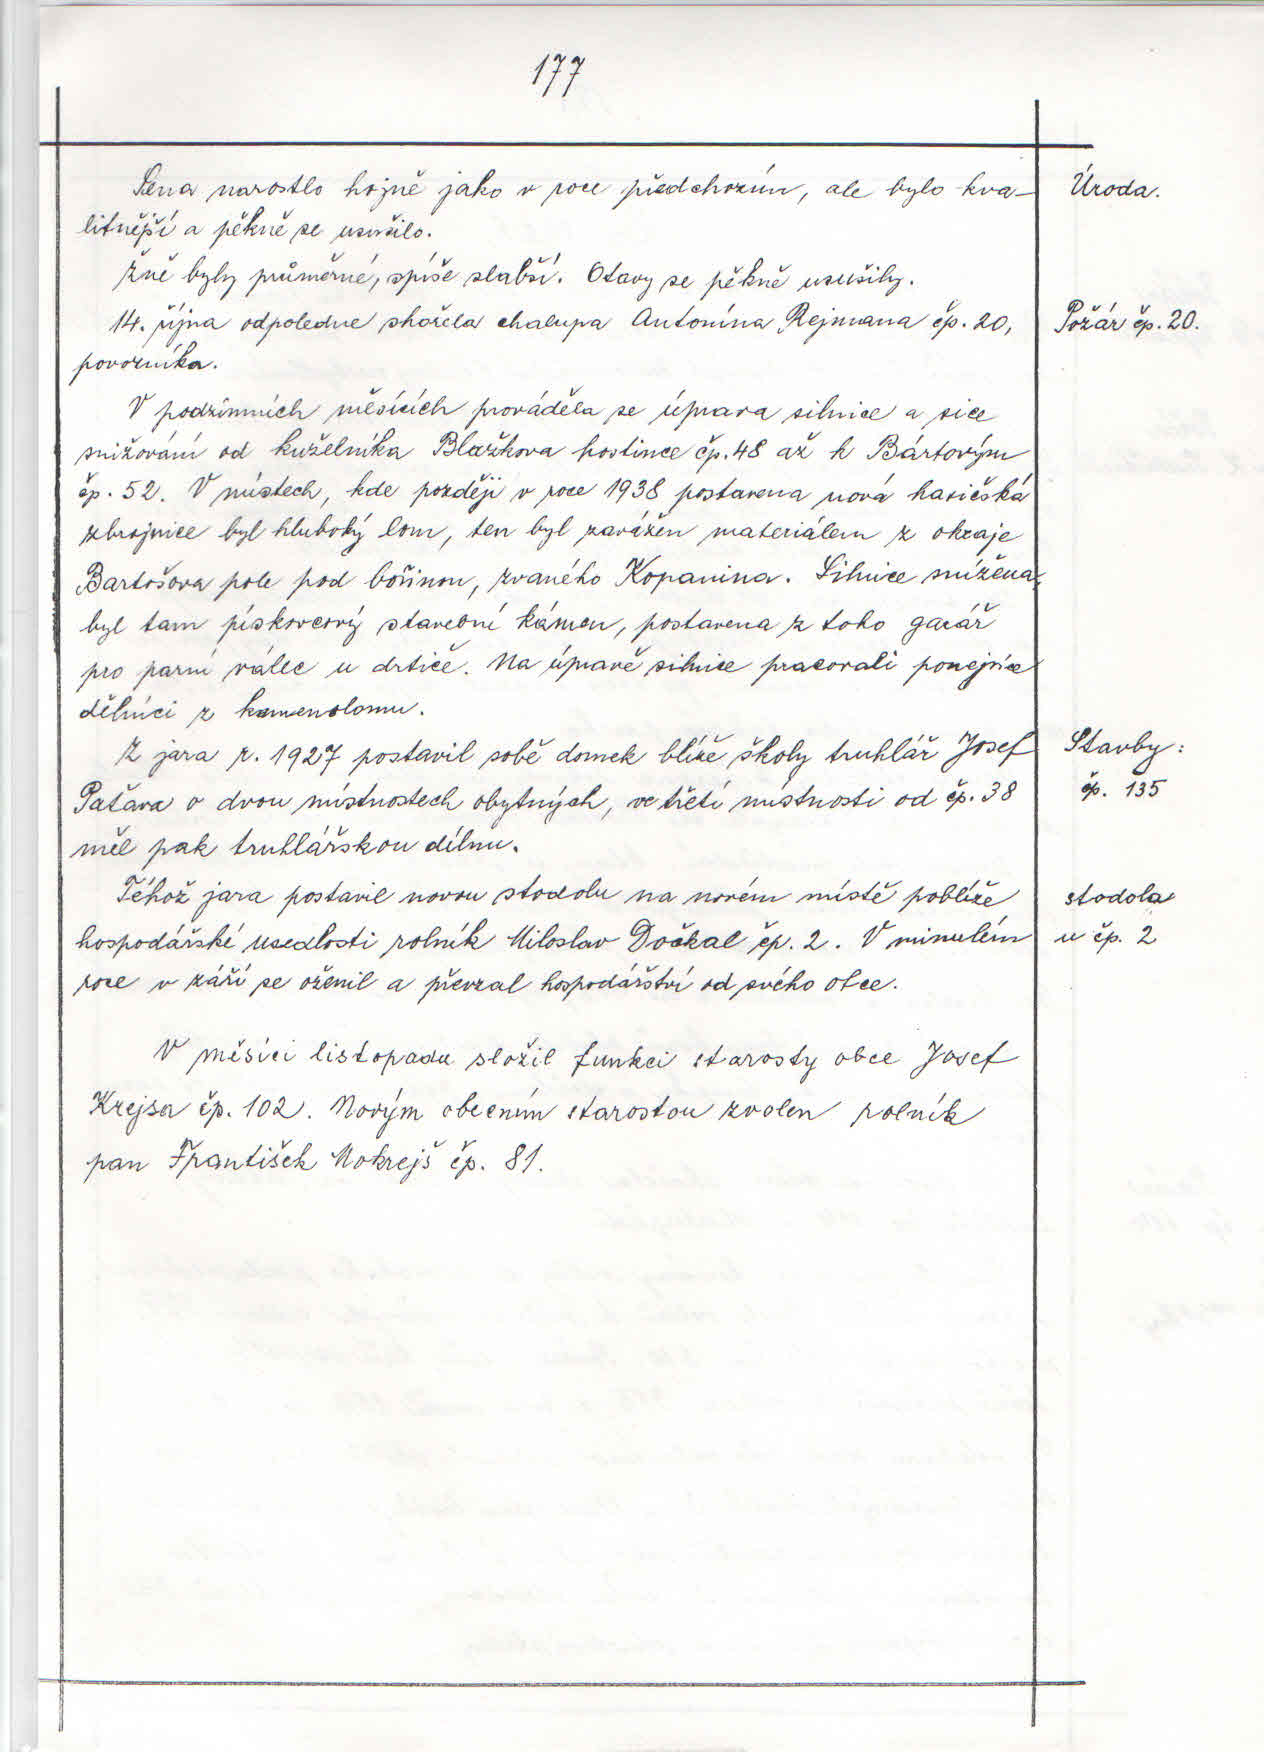 177
Sena narostlo hojně jako v roce předchozím, ale bylo kva-
litnější a pěkně se usušilo.
Úroda.
Žně byly průměrné, spíše slabší. Otavy se pěkně usušily.
14. října odpoledne shořela chalupa Antonína Rejmana čp. 20,
povozníka.
Požár čp. 20.
V podzimních měsících prováděla se úprava silnice a sice
snižování od kuželníka Blažkova hostince čp. 48 až k Bártovým
čp. 52. V místech, kde později v roce 1938 postavena nová hasičská
zbrojnice byl hluboký lom, ten byl zavážen materiálem z okraje
Bartošova pole pod bořinou, zvaného Kopanina. Silnice snížena,
byl tam pískovcový stavební kámen, postavena z toho garáž
pro parní válec u drtiče. Na úpravě silnice pracovali ponejvíce
dělníci z kamenolomu.
Z jara r. 1927 postavil sobě domek blíže školy truhlář Josef
Paťava o dvou místnostech obytných, ve třetí místnosti od čp. 38
měl pak truhlářskou dílnu.
Stavby:
čp. 135
Téhož jara postavil novou stodolu na novém místě poblíže
hospodářské usedlosti rolník Miloslav Dočkal čp. 2. V minulém
roce v září se oženil a převzal hospodářství od svého otce.
stodola
u čp. 2
V měsíci listopadu složil funkci starosty obce Josef
Krejsa čp. 102. Novým obecním starostou zvolen rolník
pan František Mokrejš čp. 81.